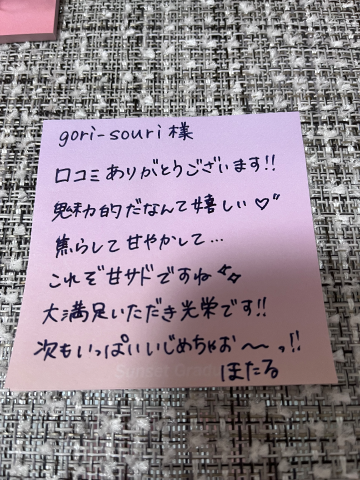 gori-souri様
口コミありがとうございます!!
魅力的だなんて嬉しい♡"
焦らして甘やかして…
これぞ甘サドですね✧
大満足いただき光栄です!!
次もいっぱいいじめちゃお〜っ!!
ほたる